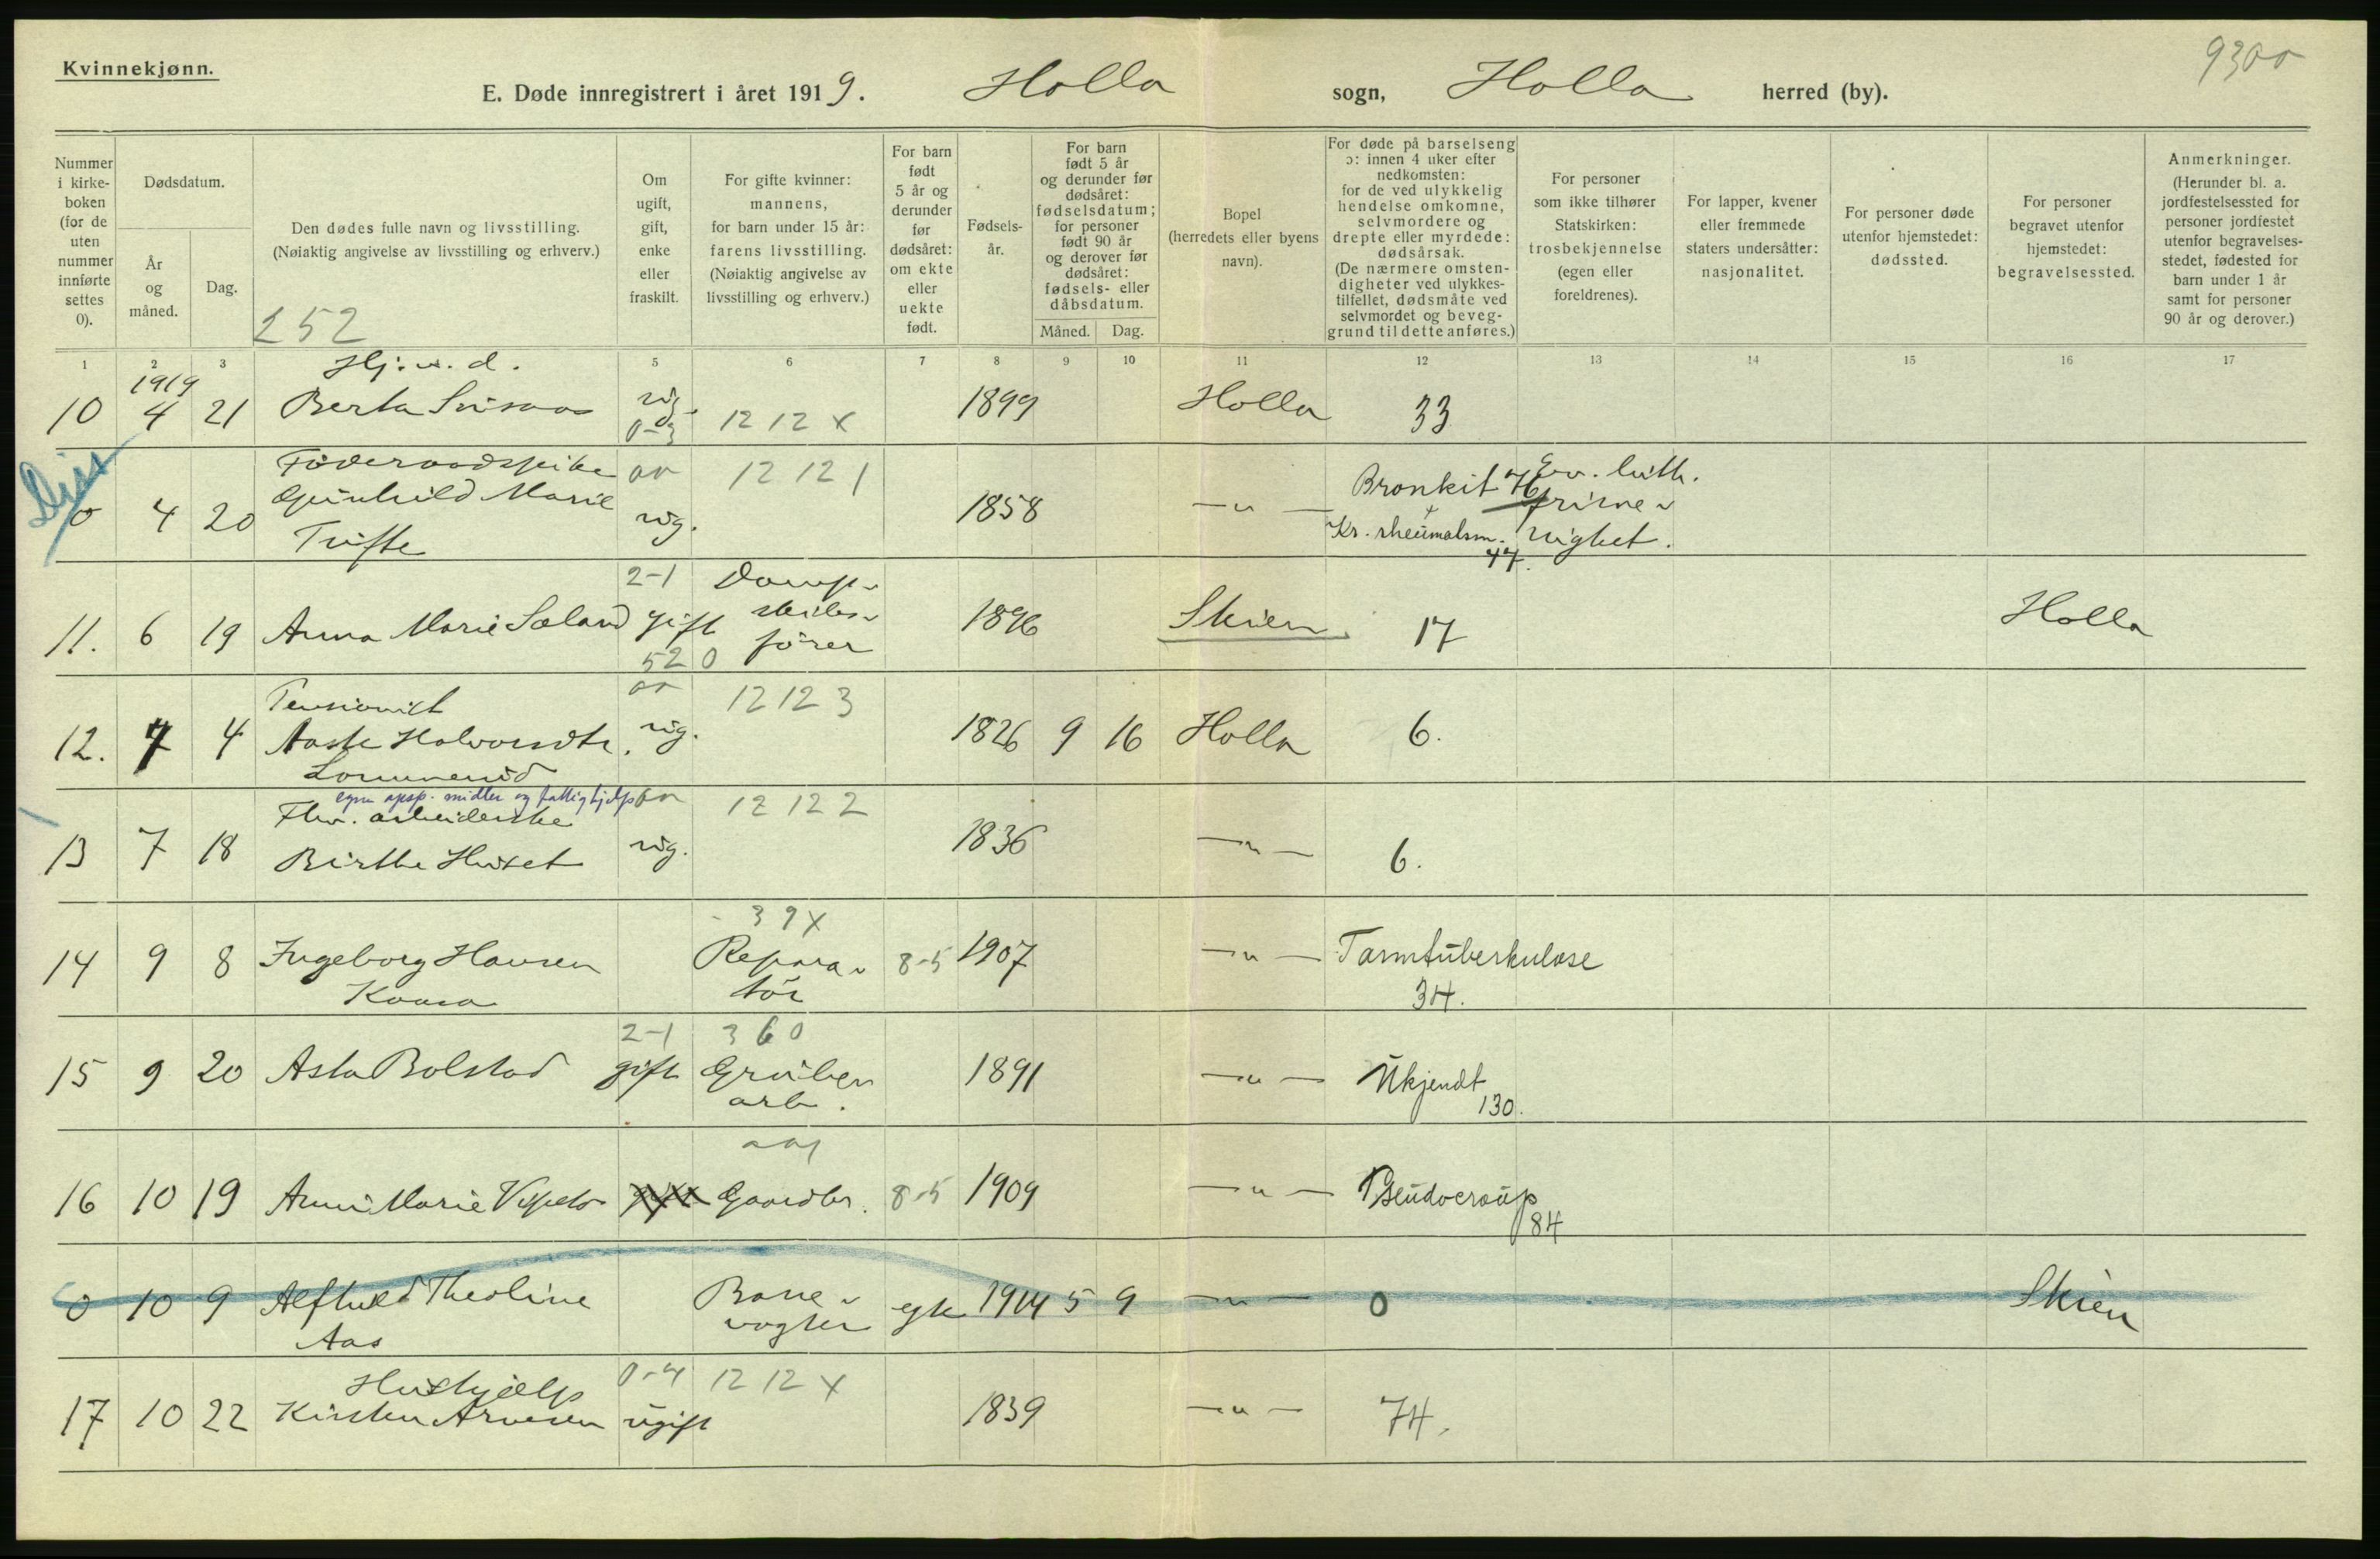 Kvinnekjønn.
9300
E. Døde innregistrert i året 1919. Holla sogn, Holla herred (by).
Nummer i kirke-boken (for de uten nummer innførte settes 0).
Dødsdatum.
År og måned.
Dag.
Den dødes fulle navn og livsstilling.
(Nøiaktig angivelse av livsstilling og erhverv.)
252
Om ugift, gift, enke eller fraskilt.
For gifte kvinner: mannens, for barn under 15 år: farens livsstilling. (Nøiaktig angivelse av livsstilling og erhverv.)
For barn født 5 år og derunder før dødsåret: om ekte eller uekte født.
Fødsels-år.
For barn født 5 år og derunder før dødsåret: fødselsdatum; for personer født 90 år og derover før dødsåret: fødsels- eller dåbsdatum.
Måned. Dag.
Bopel (herredets eller byens navn).
For døde på barselseng ɔ: innen 4 uker efter nedkomsten: for de ved ulykkelig hendelse omkomne, selvmordere og drepte eller myrdede: dødsårsak. (De nærmere omsten-digheter ved ulykkes-tilfellet, dødsmåte ved selvmordet og beveg-grund til dette anføres.)
For personer som ikke tilhører Statskirken: trosbekjennelse (egen eller foreldrenes).
For lapper, kvener eller fremmede staters undersåtter: nasjonalitet.
For personer døde utenfor hjemstedet: dødssted.
For personer begravet utenfor hjemstedet: begravelsessted.
Anmerkninger. (Herunder bl. a. jordfestelsessted for personer jordfestet utenfor begravelses-stedet, fødested for barn under 1 år samt for personer 90 år og derover.)
1 2 3 5 6 7 8 9 10 11 12 13 14 15 16 17
1919 Hj. v. d.
10 4 21 Berta ug. 0-3 12 12 x 1899 Holla 33
Diss
0 4 20 Föderaadspike Gunhild Marie Tufte ug. 12 12 1 1858 — " — Bronkit 76 + Kr. rheumatsm. 47. Ev. luth. frimenighet.
11. 6 19 Anna Marie Sæland 2-1 gift 520 Dampskibsförer 1896 Skien 17 Holla
12. 7 4 Pensionist Aaste Halvorsdtr. ug. 12 12 3 1826 9 16 Holla 6.
egne opsp. midler og fattighjelp
13 7 18 Fhv. arbeiderske Birthe Huset ug. 12 12 2 1836 — " — 6.
14 9 8 Ingeborg Hansen Kaasa 39x Reparatör 8-5 1907 — " — Tarmtuberkulose 34.
15 9 20 Asta Bolstad 2-1 gift 360 Grubearb. 1891 — " — Ukjendt 130.
16 10 19 Anne Marie Gaardbr. 8-5 1909 — " — Pseudocroup 84
0 10 9 Alfhild Theoline Aas Banevogter egte 1914 5 9 — " — 0 Skien
17 10 22 Hushjælp Kirsten Arnesen 0-4 ugift 12 12 x 1839 — " — 74.